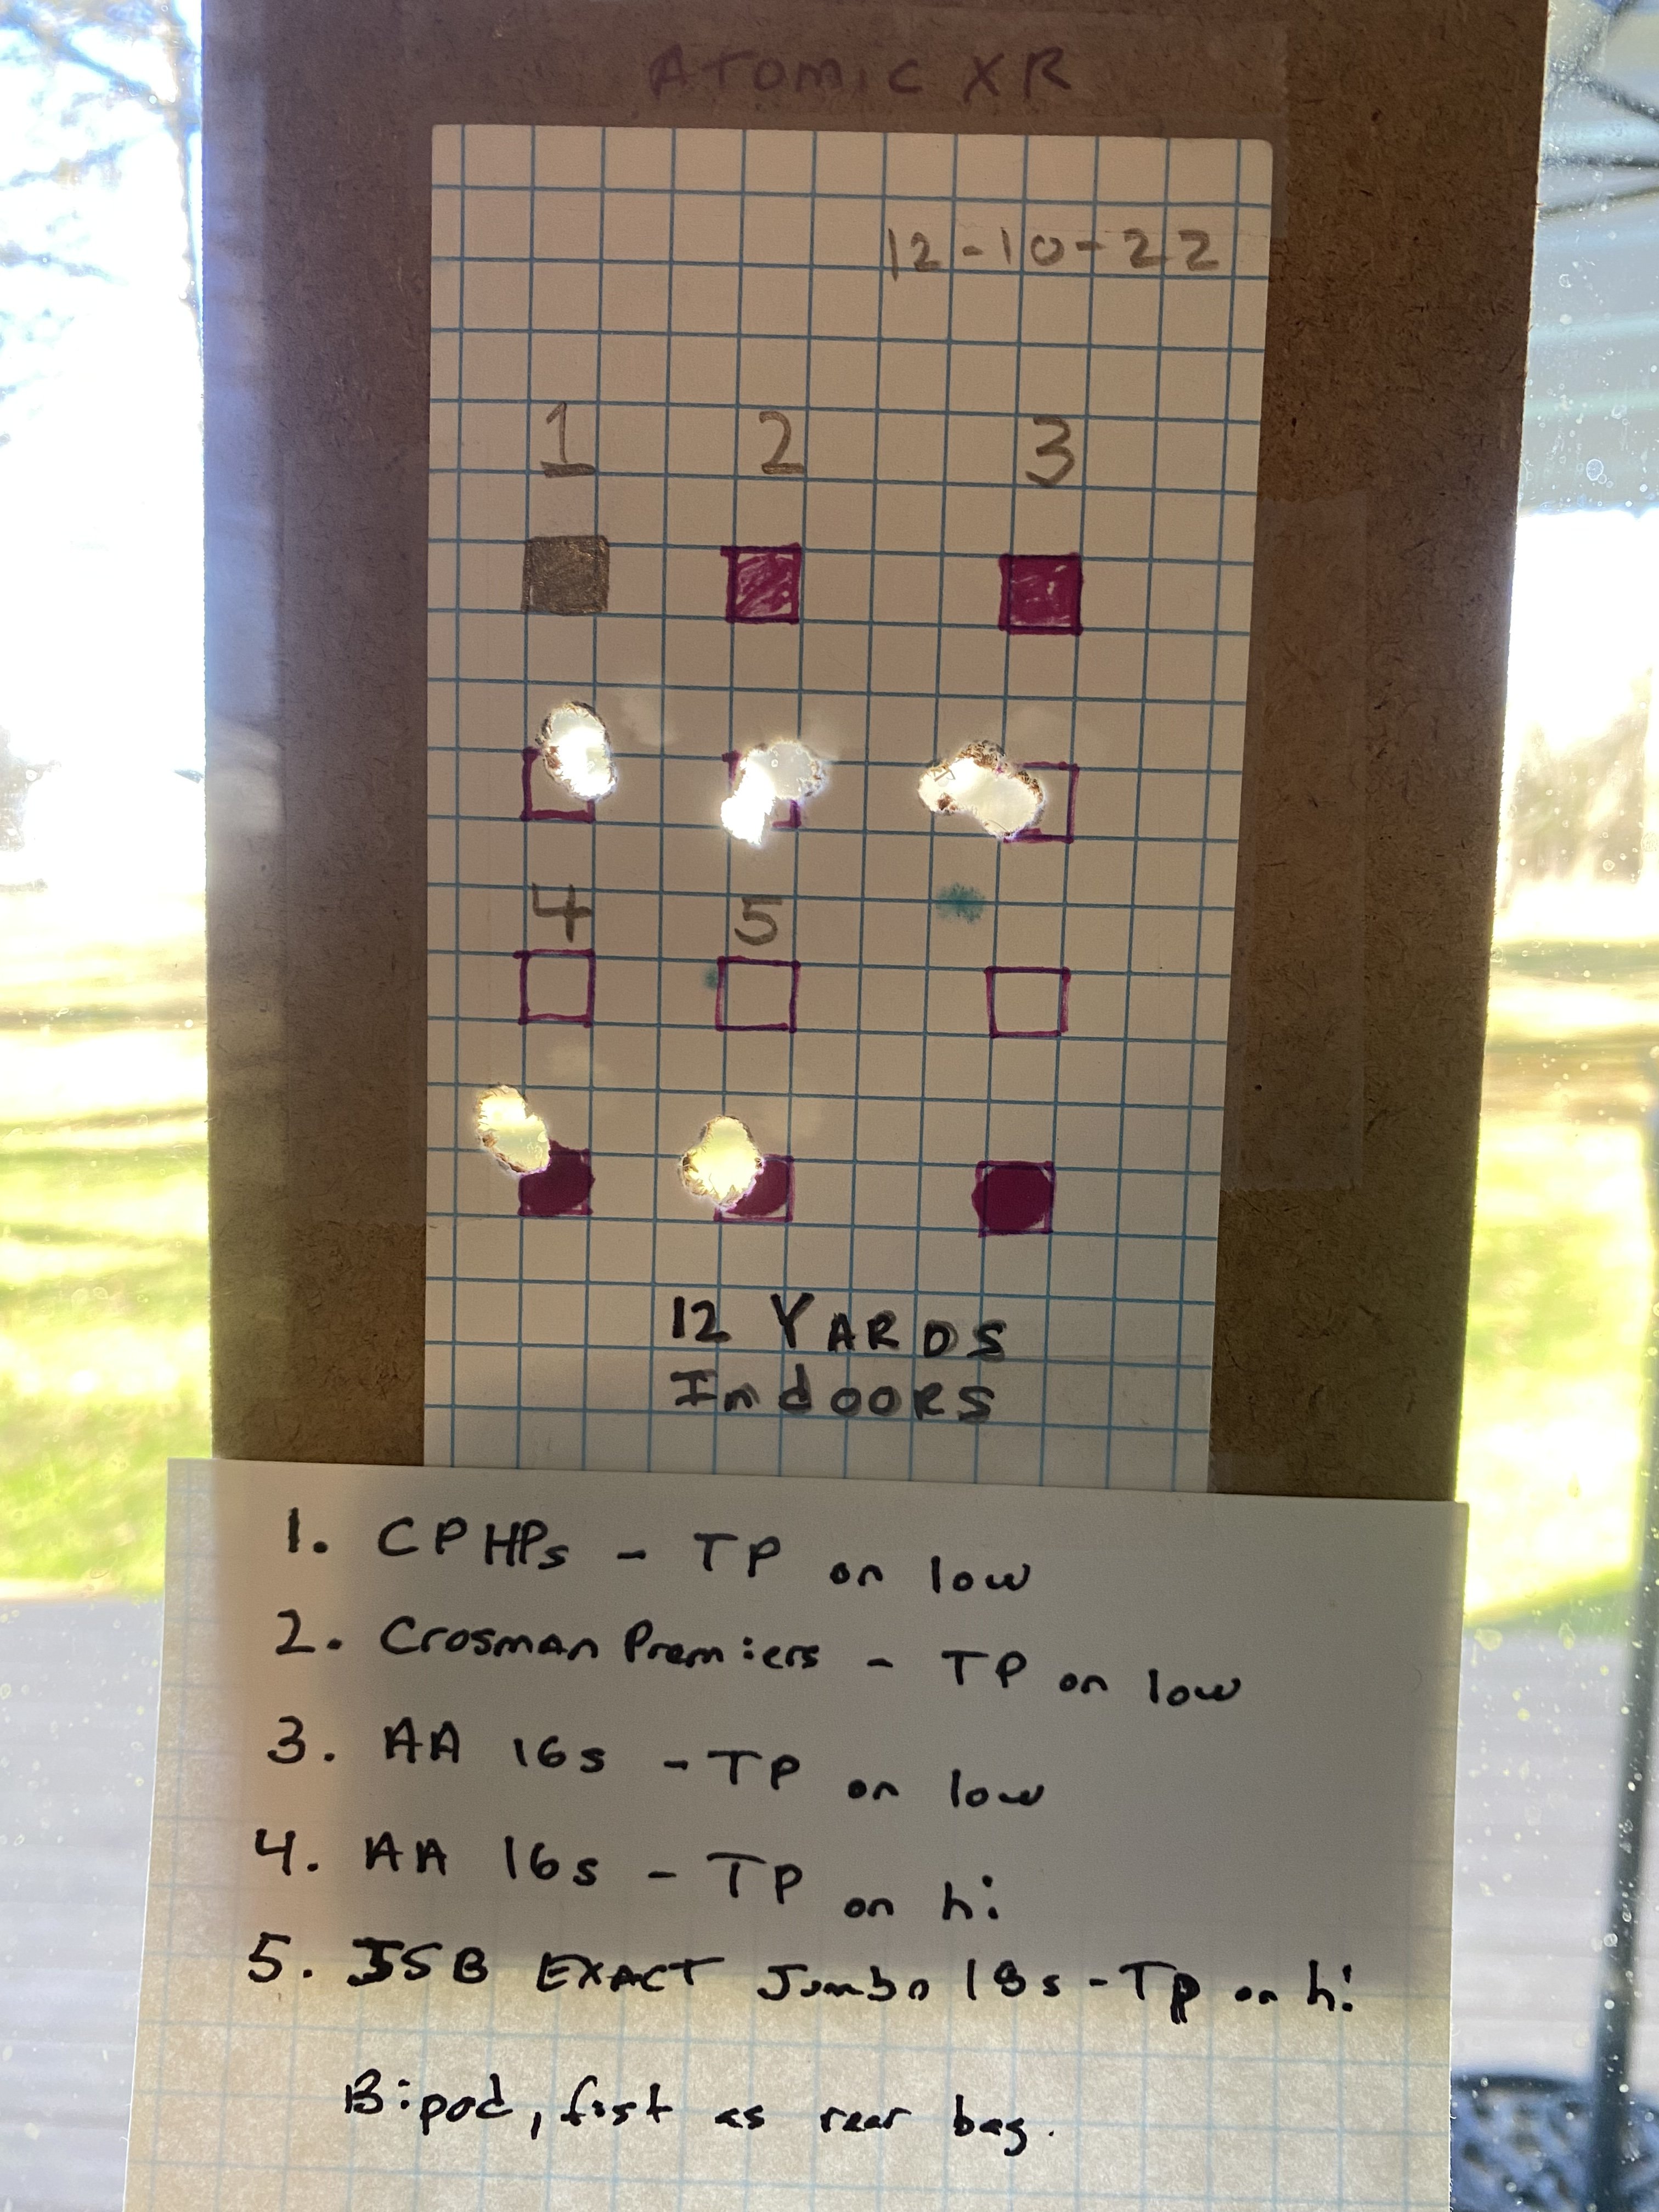 ATOMIC XR
12-10-22
1 2 3
4 5
12 YARDS
Indoors
1. CPHPs - TP on low
2. Crosman Premiers - TP on low
3. AA 16s - TP on low
4. AA 16s - TP on hi
5. JSB EXACT Jumbo 18s - TP on hi
Bipod, fist as rear bag.